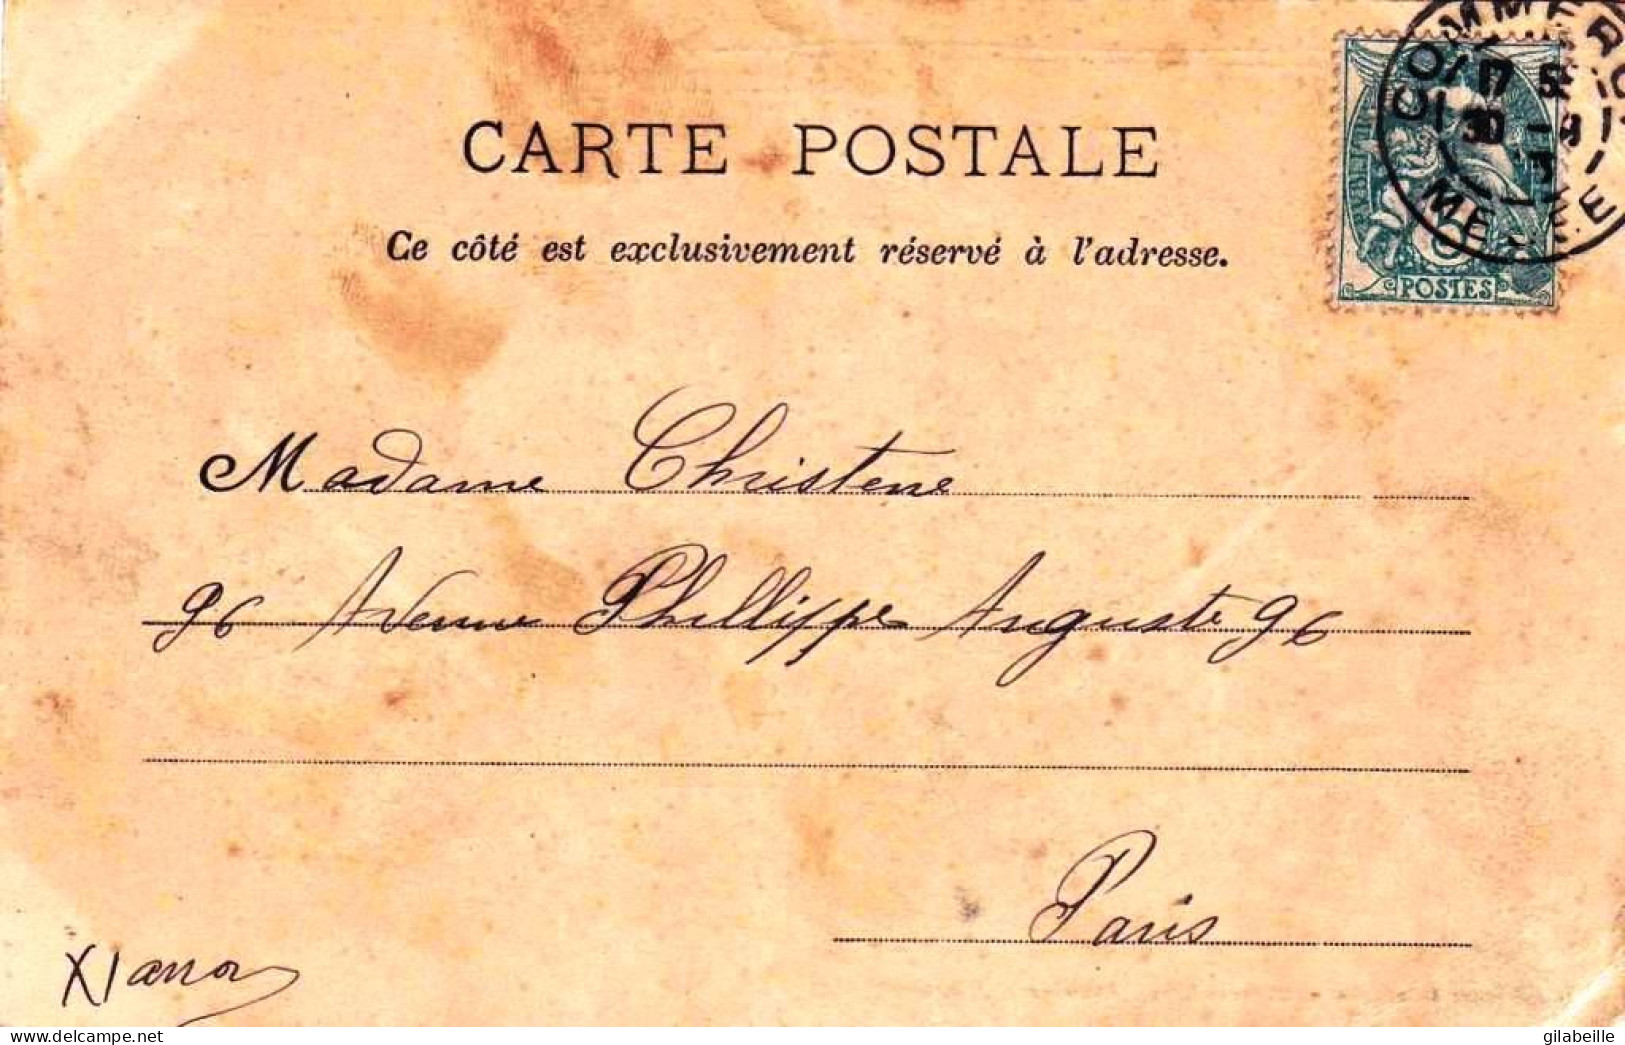 COMMERCY
17 5
30 -9
3
MEUSE
POSTES
CARTE POSTALE
Ce côté est exclusivement réservé à l'adresse.
Madame Christene
96 Avenue Phillippe Auguste 96
Paris
gilabeille